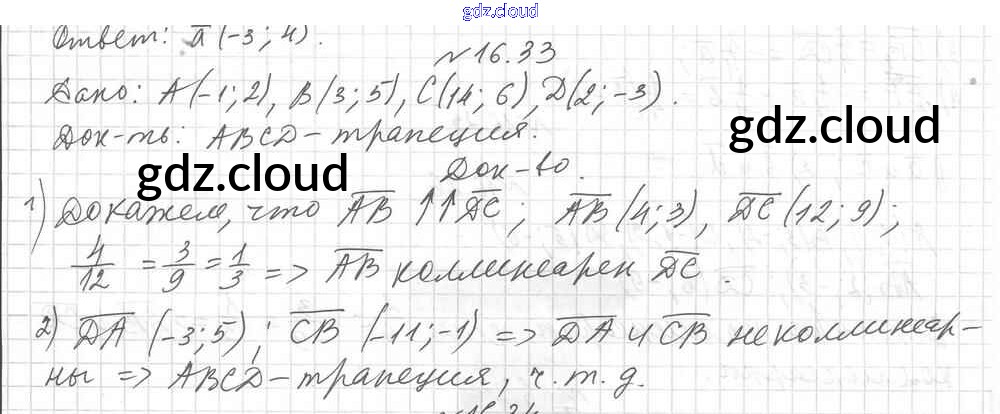 gdz.cloud
Ответ: a̅ (-3; 4).
№16.33
Дано: A(-1; 2), B(3; 5), C(14; 6), D(2; -3).
Док-ть: ABCD-трапеция.
gdz.cloud
Док-во.
gdz.cloud
1) Докажем, что A̅B̅ ↑↑ D̅C̅; A̅B̅ (4; 3), D̅C̅ (12; 9);
4/12 = 3/9 = 1/3 => A̅B̅ коллинеарен D̅C̅.
2) D̅A̅ (-3; 5); C̅B̅ (-11; -1) => D̅A̅ и C̅B̅ неколлинеар-
ны => ABCD-трапеция, ч.т.д.